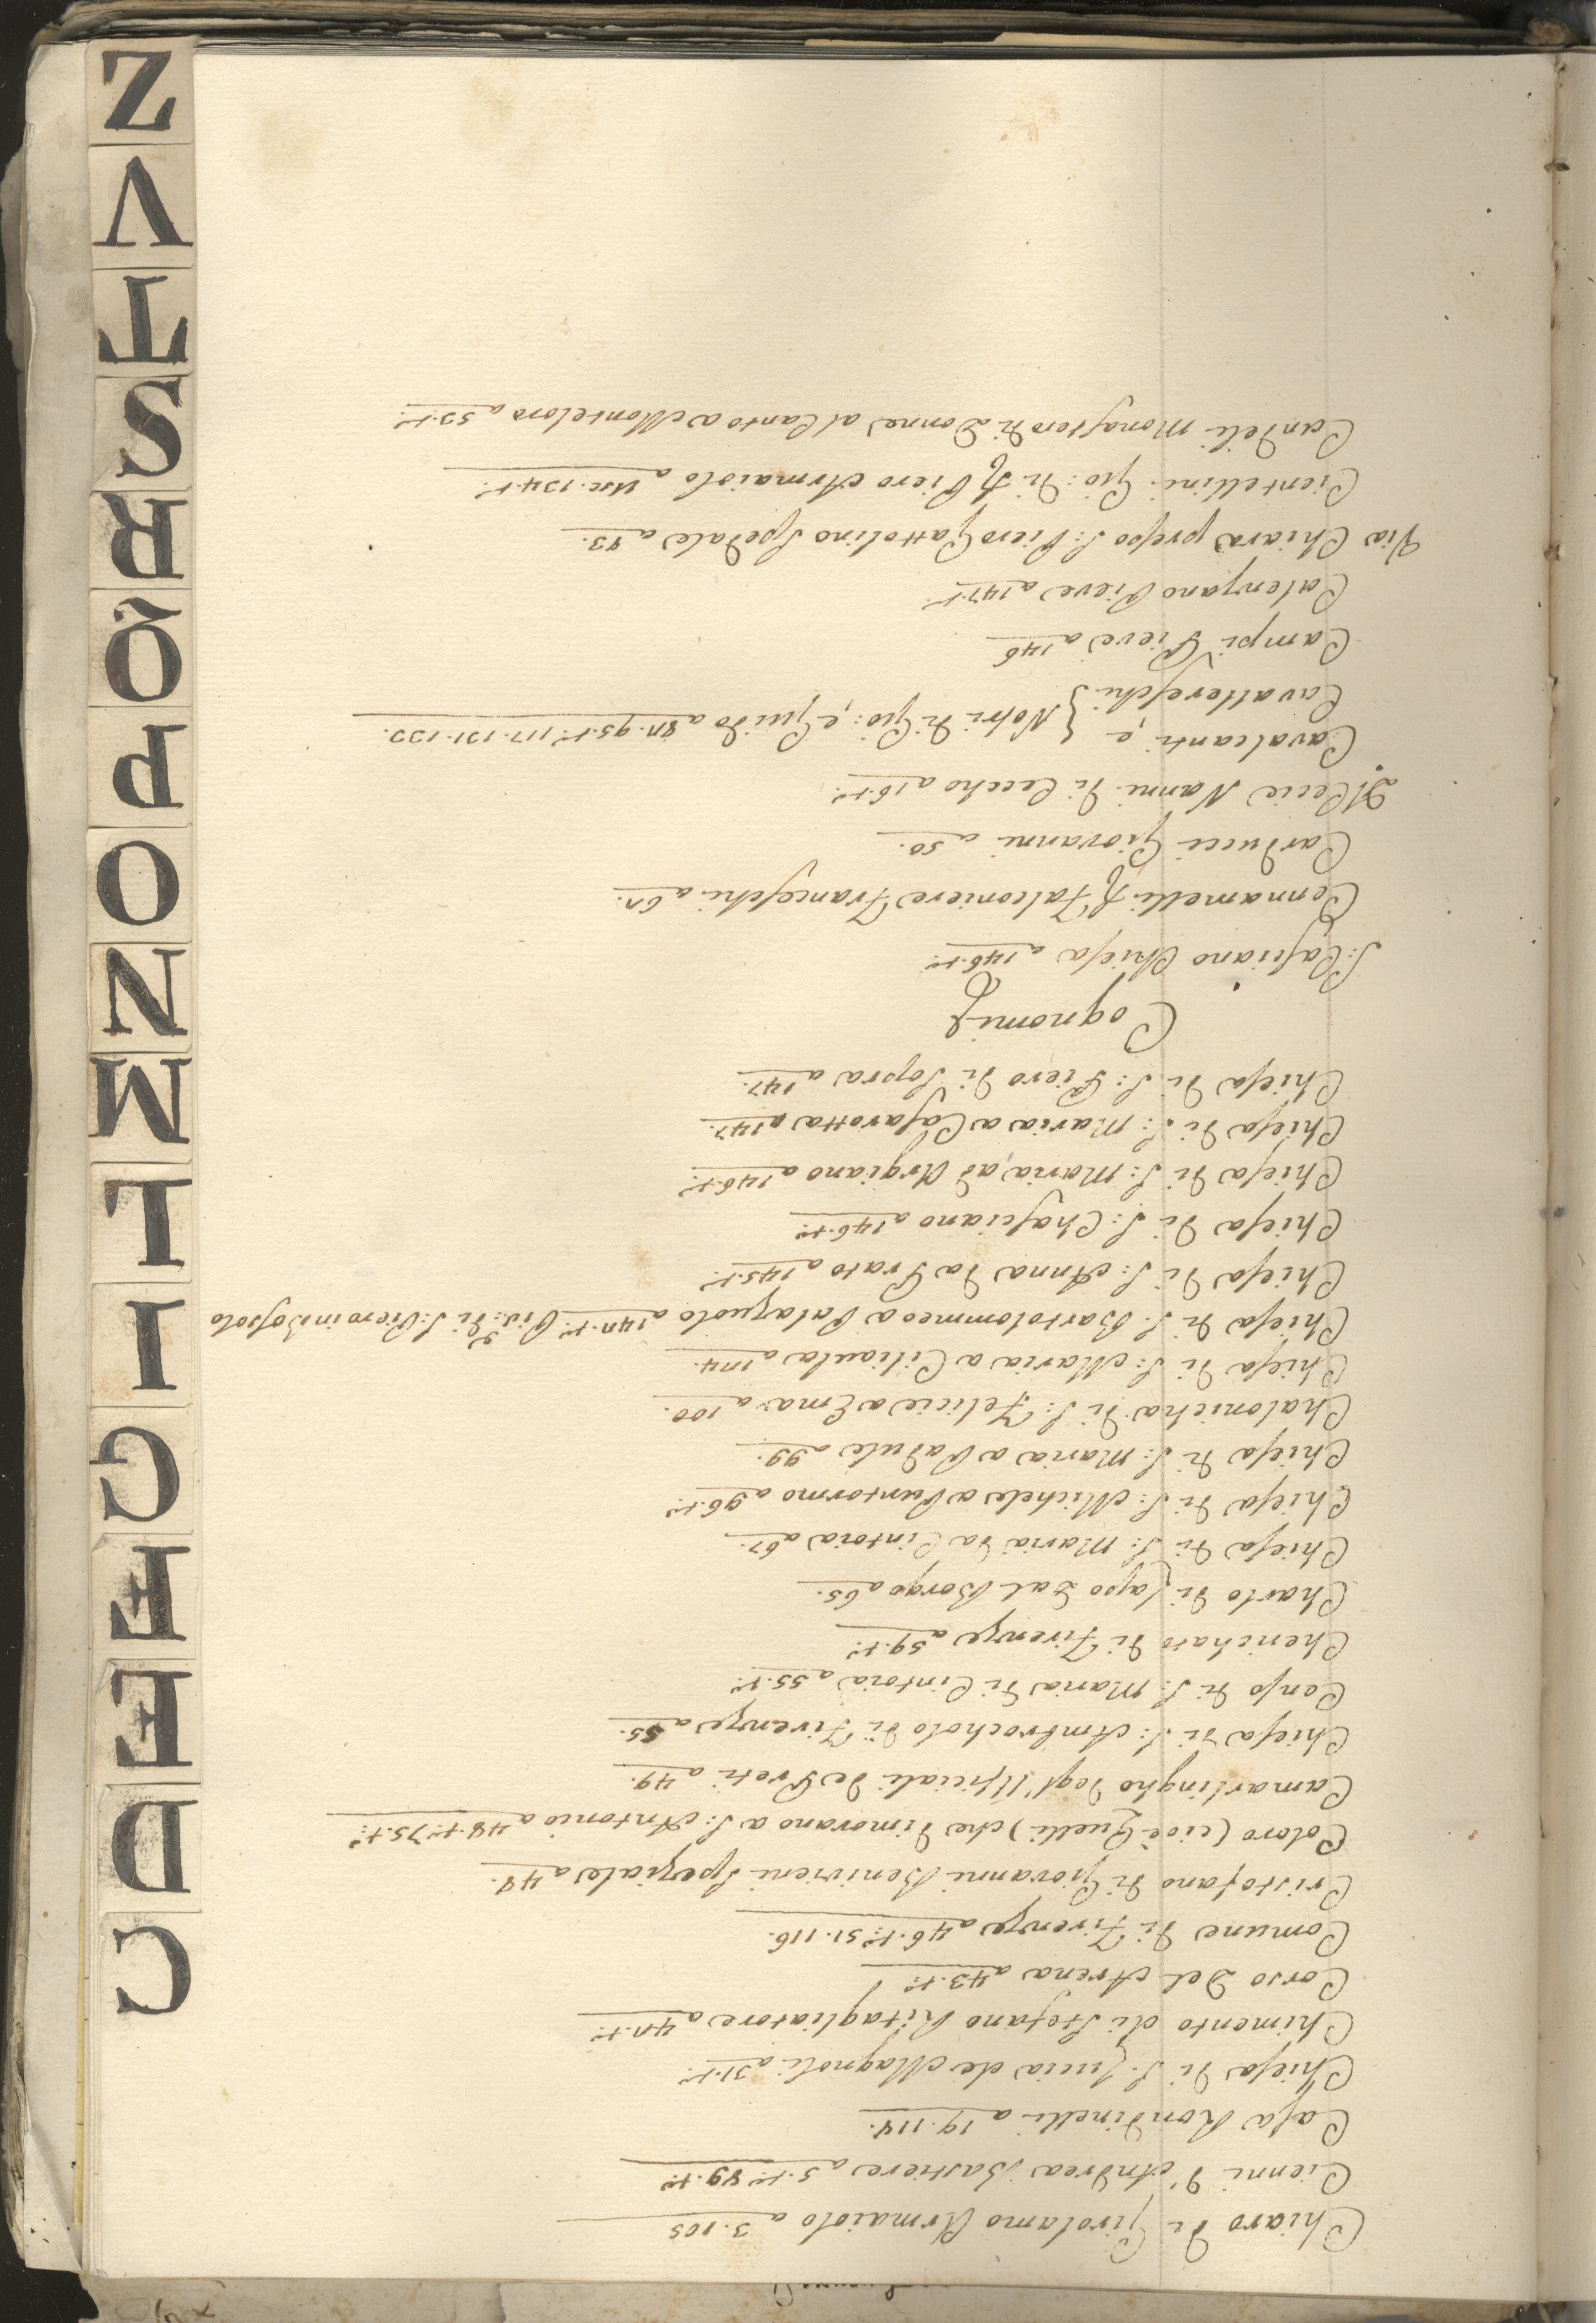 Chiaro di Girolamo Armaiolo a 3. 105
Cienni d'Andrea Bastiere a 5.to 89.to
Casa Rondinelli a 19. 114.
Chiesa di S: Lucia de Magnoli a 31.to
Chimento di Stefano Ritagliatore a 42.to
Corso Del Arena a 43.to
Comune di Firenze a 46.to 51. 116.
Cristofano di Giovanni Benivieni Speziale a 48.
Coloro (cioè Quelli) che dimorano a S: Antonio a 48.to 75.to
Camarlingho degl'Uficiali de Preti a 49.
Chiesa di S: Ambrocholo di Firenze a 55.
Censo di S: Maria di Cintoia a 55.to
Chericato di Firenze a 59.to
Charlo di Lapo Dal Borgo a 65.
Chiesa di S: Maria da Cintoia a 67.
Chiesa di S: Michele a Puntormo a 96.to
Chiesa di S: Maria a Padule a 99.
Chalonicha di S: Felicie a Ema a 100.
Chiesa di S: Maria a Ciliaula a 124.
Chiesa di S: Bartolommeo a Palazuolo a 142.to Pis: di S: Piero in Bossolo
Chiesa di S: Anna da Prato a 145.to
Chiesa di S: Chasciano a 146.to
Chiesa di S: Maria, ad Argiano a 146.to
Chiesa di S: Maria a Casarotta a 147.
Chiesa di S: Piero di Sopra a 147.
Cognomi
S: Casciano Chiesa a 146.to
Cennamelli Falconiere Franceschi a 62.
Carducci Giovanni a 50.
Cecie Nanni di Ceccho a 16.to
Cavalcanti, e
Cavallereschi } Nofri di Gio:, e Guido a 82. 95.to 117. 131. 133.
Campi Pieve a 146
Calenzano Pieve a 147.to
Via Chiara presso S: Piero Gattolino Spedale a 93.
Cientellini Gio: di Piero Armaiolo a 124.to
Candeli Monastero di Donne al Canto a Monteloro a 53.to
C
D
E
F
G
I
L
M
N
O
P
Q
R
S
T
V
Z